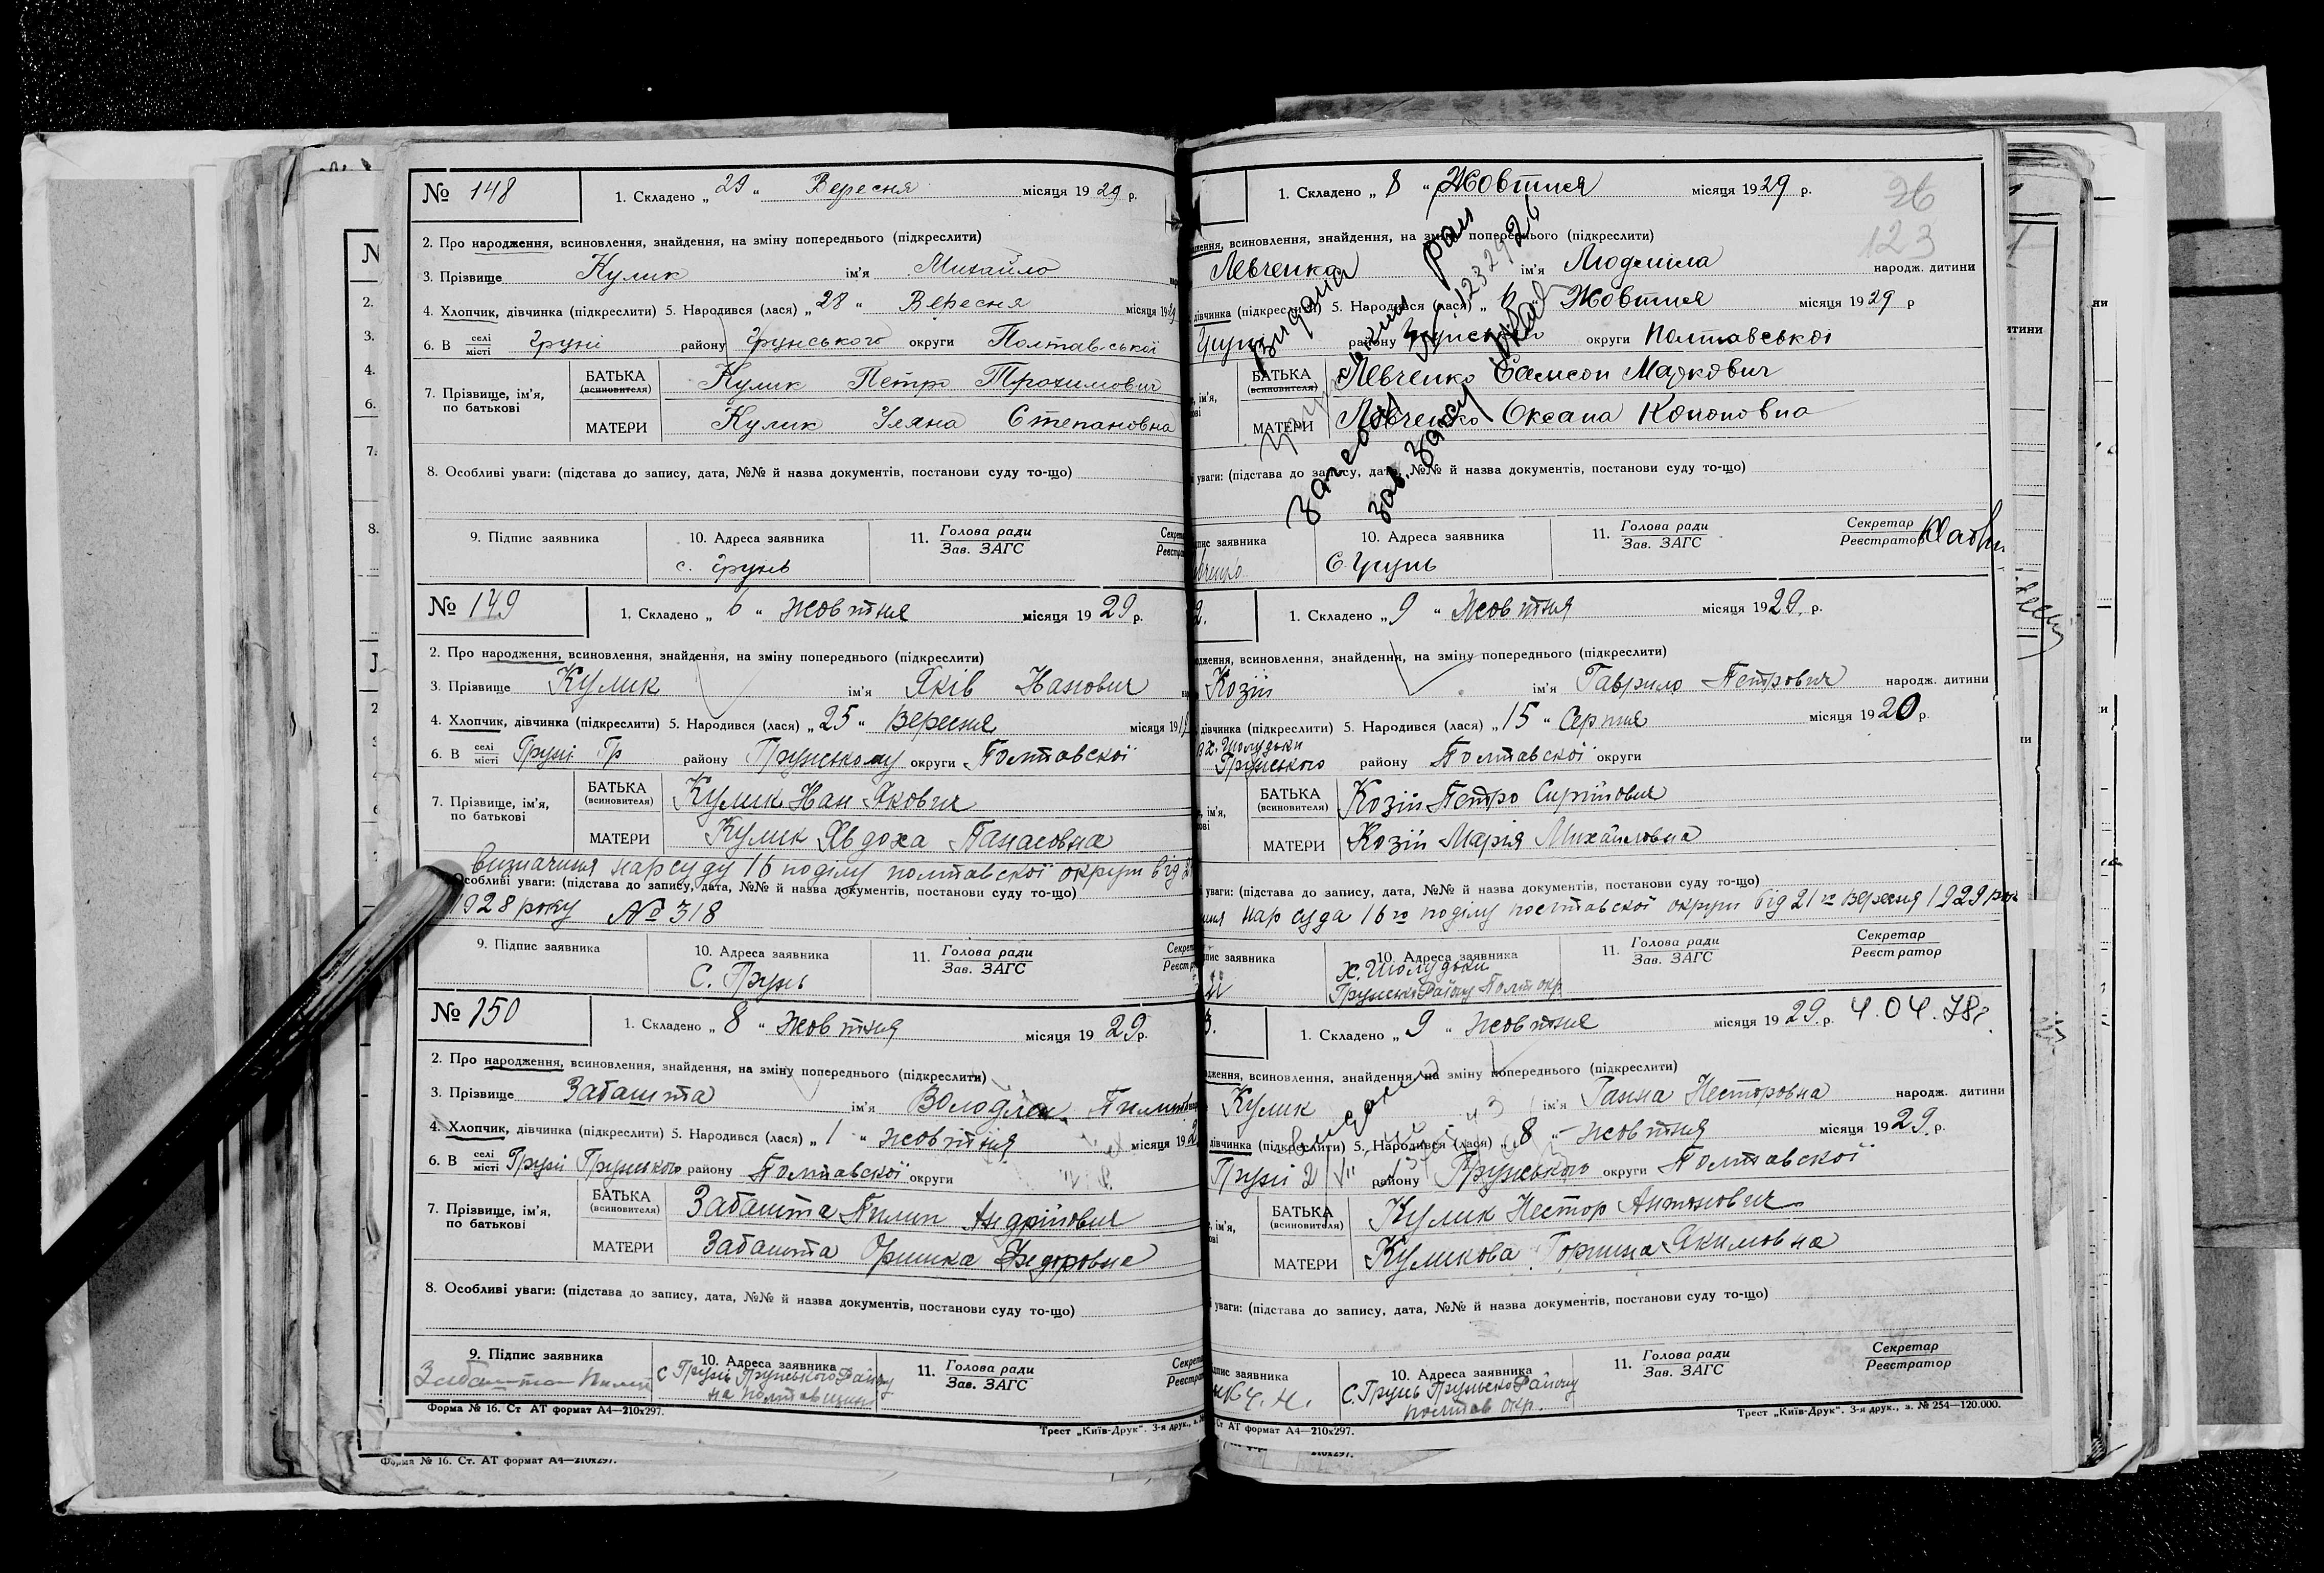 № 148
1. Складено „ 29 “ Вересня місяця 1929 р.
2. Про народження, всиновлення, знайдення, на зміну попереднього (підкреслити)
3. Прізвище Кулик ім'я Михайло
4. Хлопчик, дівчинка (підкреслити) 5. Народився (лася) „ 28 “ Вересня місяця 19
6. В селі місті Груні району Грунського округи Полтавської
7. Прізвище, ім'я, по батькові
БАТЬКА (всиновителя) Кулик Петро Трохимович
МАТЕРИ Кулик Уляна Степановна
8. Особливі уваги: (підстава до запису, дата, №№ й назва документів, постанови суду то-що)
9. Підпис заявника 10. Адреса заявника 11. Голова ради Зав. ЗАГС
с. Грунь
№ 149
1. Складено „ 6 “ Жовтня місяця 1929 р.
2. Про народження, всиновлення, знайдення, на зміну попереднього (підкреслити)
3. Прізвище Кулик ім'я Яків Іванович
4. Хлопчик, дівчинка (підкреслити) 5. Народився (лася) „ 25 “ Вересня місяця 19
6. В селі місті Груні Гр району Грунському округи Полтавської
7. Прізвище, ім'я, по батькові
БАТЬКА (всиновителя) Кулик Іван Якович
МАТЕРИ Кулик Явдоха Панасовна
Визначиня нарсуду 16 поділу полтавскої округи від 2
Особливі уваги: (підстава до запису, дата, №№ й назва документів, постанови суду то-що)
1928 року № 318
9. Підпис заявника 10. Адреса заявника 11. Голова ради Зав. ЗАГС
С. Грунь
№ 150
1. Складено „ 8 “ Жовтня місяця 1929 р.
2. Про народження, всиновлення, знайдення, на зміну попереднього (підкреслити)
3. Прізвище Забашта ім'я
4. Хлопчик, дівчинка (підкреслити) 5. Народився (лася) „ 1 “ Жовтня місяця 192
6. В селі місті Груні Грунського району Полтавської округи
7. Прізвище, ім'я, по батькові
БАТЬКА (всиновителя) Забашта Пилип Андрійович
МАТЕРИ Забашта Оришка
8. Особливі уваги: (підстава до запису, дата, №№ й назва документів, постанови суду то-що)
9. Підпис заявника 10. Адреса заявника 11. Голова ради Зав. ЗАГС
Забашта Пилип С Грунь Грунського Району
на полтавщині
Форма № 16. Ст АТ формат А4—210х297.
Трест „Київ-Друк“. 3-я друк.,
Форма № 16. Ст. АТ формат А4—210х297.
1. Складено „ 8 “ Жовтня місяця 1929 р.
26
123
всиновлення, знайдення, на зміну попереднього (підкреслити)
Левченко ім'я Людмила народж. дитини
дівчинка (підкреслити) 5. Народився (лася) „ 6 “ Жовтня місяця 1929 р
району округи Полтавської
БАТЬКА (всиновителя) Левченко Самсон Маркович
МАТЕРИ Левченко Оксана Кононовна
Видана
уваги: (підстава до запису, дата, №№ й назва документів, постанови суду то-що)
заявника 10. Адреса заявника 11. Голова ради Зав. ЗАГС Секретар Реєстратор
С Грунь
1. Складено „ 9 “ Жовтня місяця 1929. р.
всиновлення, знайдення, на зміну попереднього (підкреслити)
Козій ім'я Гаврило Петрович народж. дитини
дівчинка (підкреслити) 5. Народився (лася) „ 15 “ Серпня місяця 1920 р.
х. Шолудьки
Грунського району Полтавської округи
БАТЬКА (всиновителя) Козій Петро Сиргійович
МАТЕРИ Козій Марія Михайловна
уваги: (підстава до запису, дата, №№ й назва документів, постанови суду то-що)
нар суда 16го поділу полтавскої округи від 21го вересня 1929 рок
заявника 10. Адреса заявника 11. Голова ради Зав. ЗАГС Секретар Реєстратор
х. Шолудьки
Грунськ Району Полт окр
1. Складено „ 9 “ Жовтня місяця 1929. р. 4.04.78г.
всиновлення, знайдення, на зміну попереднього (підкреслити)
Кулик ім'я Ганна Несторовна народж. дитини
дівчинка (підкреслити) 5. Народився (лася) „ 8 “ Жовтня місяця 1929. р.
Груні району Грунського округи Полтавської
БАТЬКА (всиновителя) Кулик Нестор Антонович
МАТЕРИ Куликова Горпина Якимовна
уваги: (підстава до запису, дата, №№ й назва документів, постанови суду то-що)
заявника 10. Адреса заявника 11. Голова ради Зав. ЗАГС Секретар Реєстратор
С. Грунь Грунсько Району
полтав окр.
Ст АТ формат А4—210х297.
Трест „Київ-Друк“. 3-я друк., з. № 254—120.000.